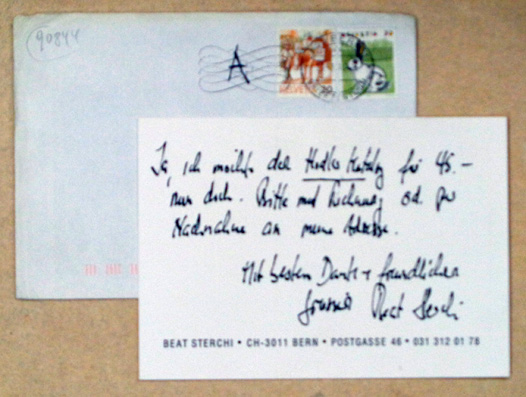 90844
A
HELVETIA
HELVETIA
Ja, ich möchte den Hodler Katalog für 45.–
nun doch. Bitte mit Rechnung od. per
Nachnahme an meine Adresse.
Mit bestem Dank + freundlichen
Grüssen Beat Sterchi
BEAT STERCHI • CH-3011 BERN • POSTGASSE 46 • 031 312 01 78